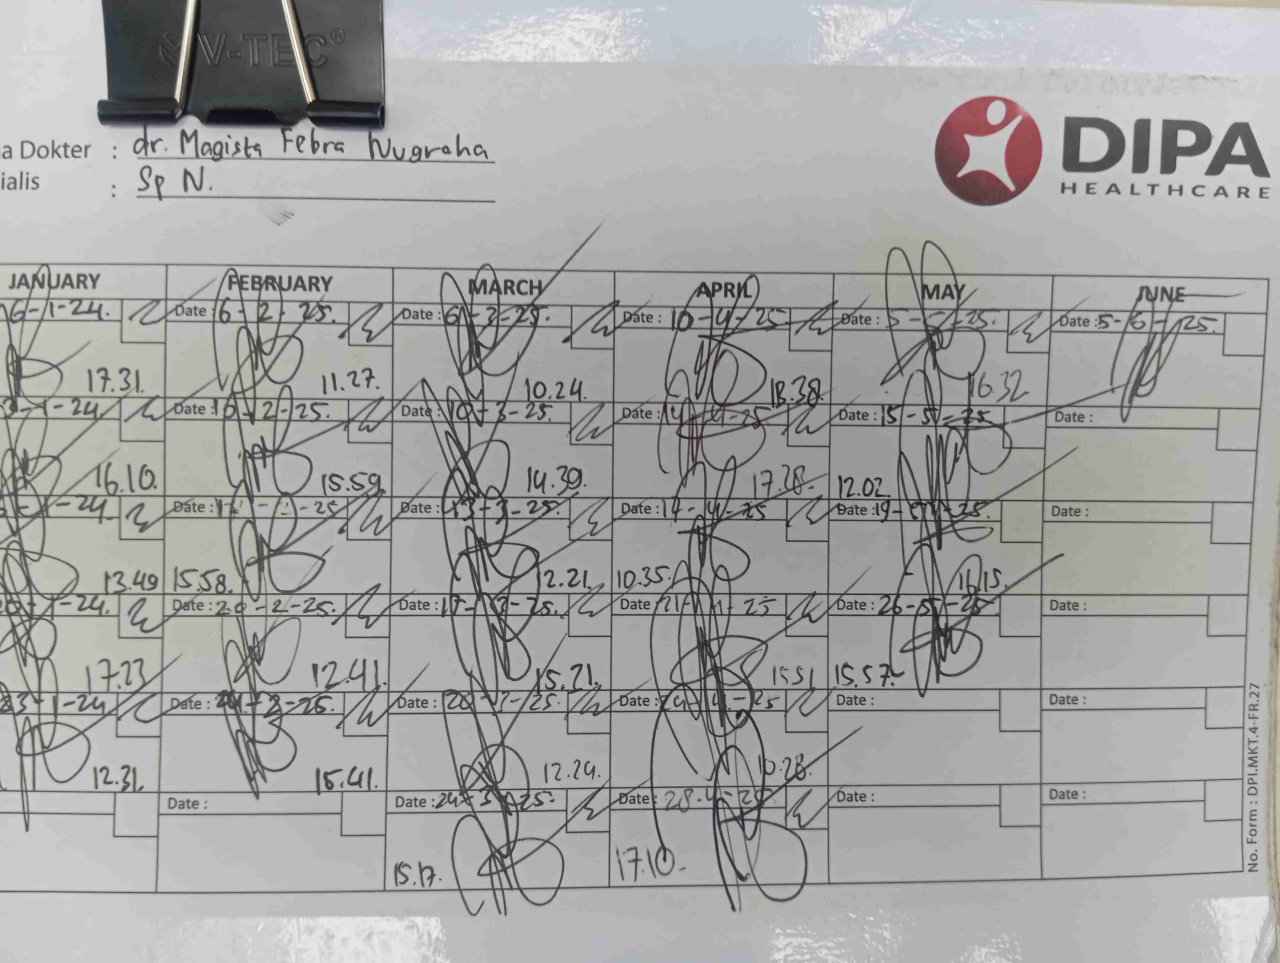 V-TEC®
a Dokter : dr. Magista Febra Nugraha
ialis : Sp N.
DIPA
HEALTHCARE
JANUARY FEBRUARY MARCH APRIL MAY JUNE
6-1-24. Date : 6-2-25. Date : 6-3-25. Date : 10-4-25 Date : 5-5-25. Date : 5-6-25.
17.31. 11.27. 10.24. 18.38. 16.32
-1-24. Date : 10-2-25. Date : 10-3-25. Date : 14-4-25 Date : 15-5-25 Date :
16.10. 15.59 14.39. 17.28. 12.02
-1-24. Date : -2-25 Date : 13-3-25. Date : 17-4-25 Date : 19-5-25. Date :
13.49 15.58. 12.21. 10.35. 16.15.
20-1-24. Date : 20-2-25. Date : 17-3-25. Date : 21-4-25 Date : 26-5-25 Date :
17.23 12.41. 15.21. 15.51 15.57.
23-1-24 Date : 24-2-25. Date : 20-3-25. Date : 24-4-25 Date : Date :
12.31. 15.41. 12.24. 10.28.
Date : Date : 24-3-25. Date : 28-4-25 Date : Date :
15.17. 17.10.
No. Form : DPI.MKT.4-FR.27